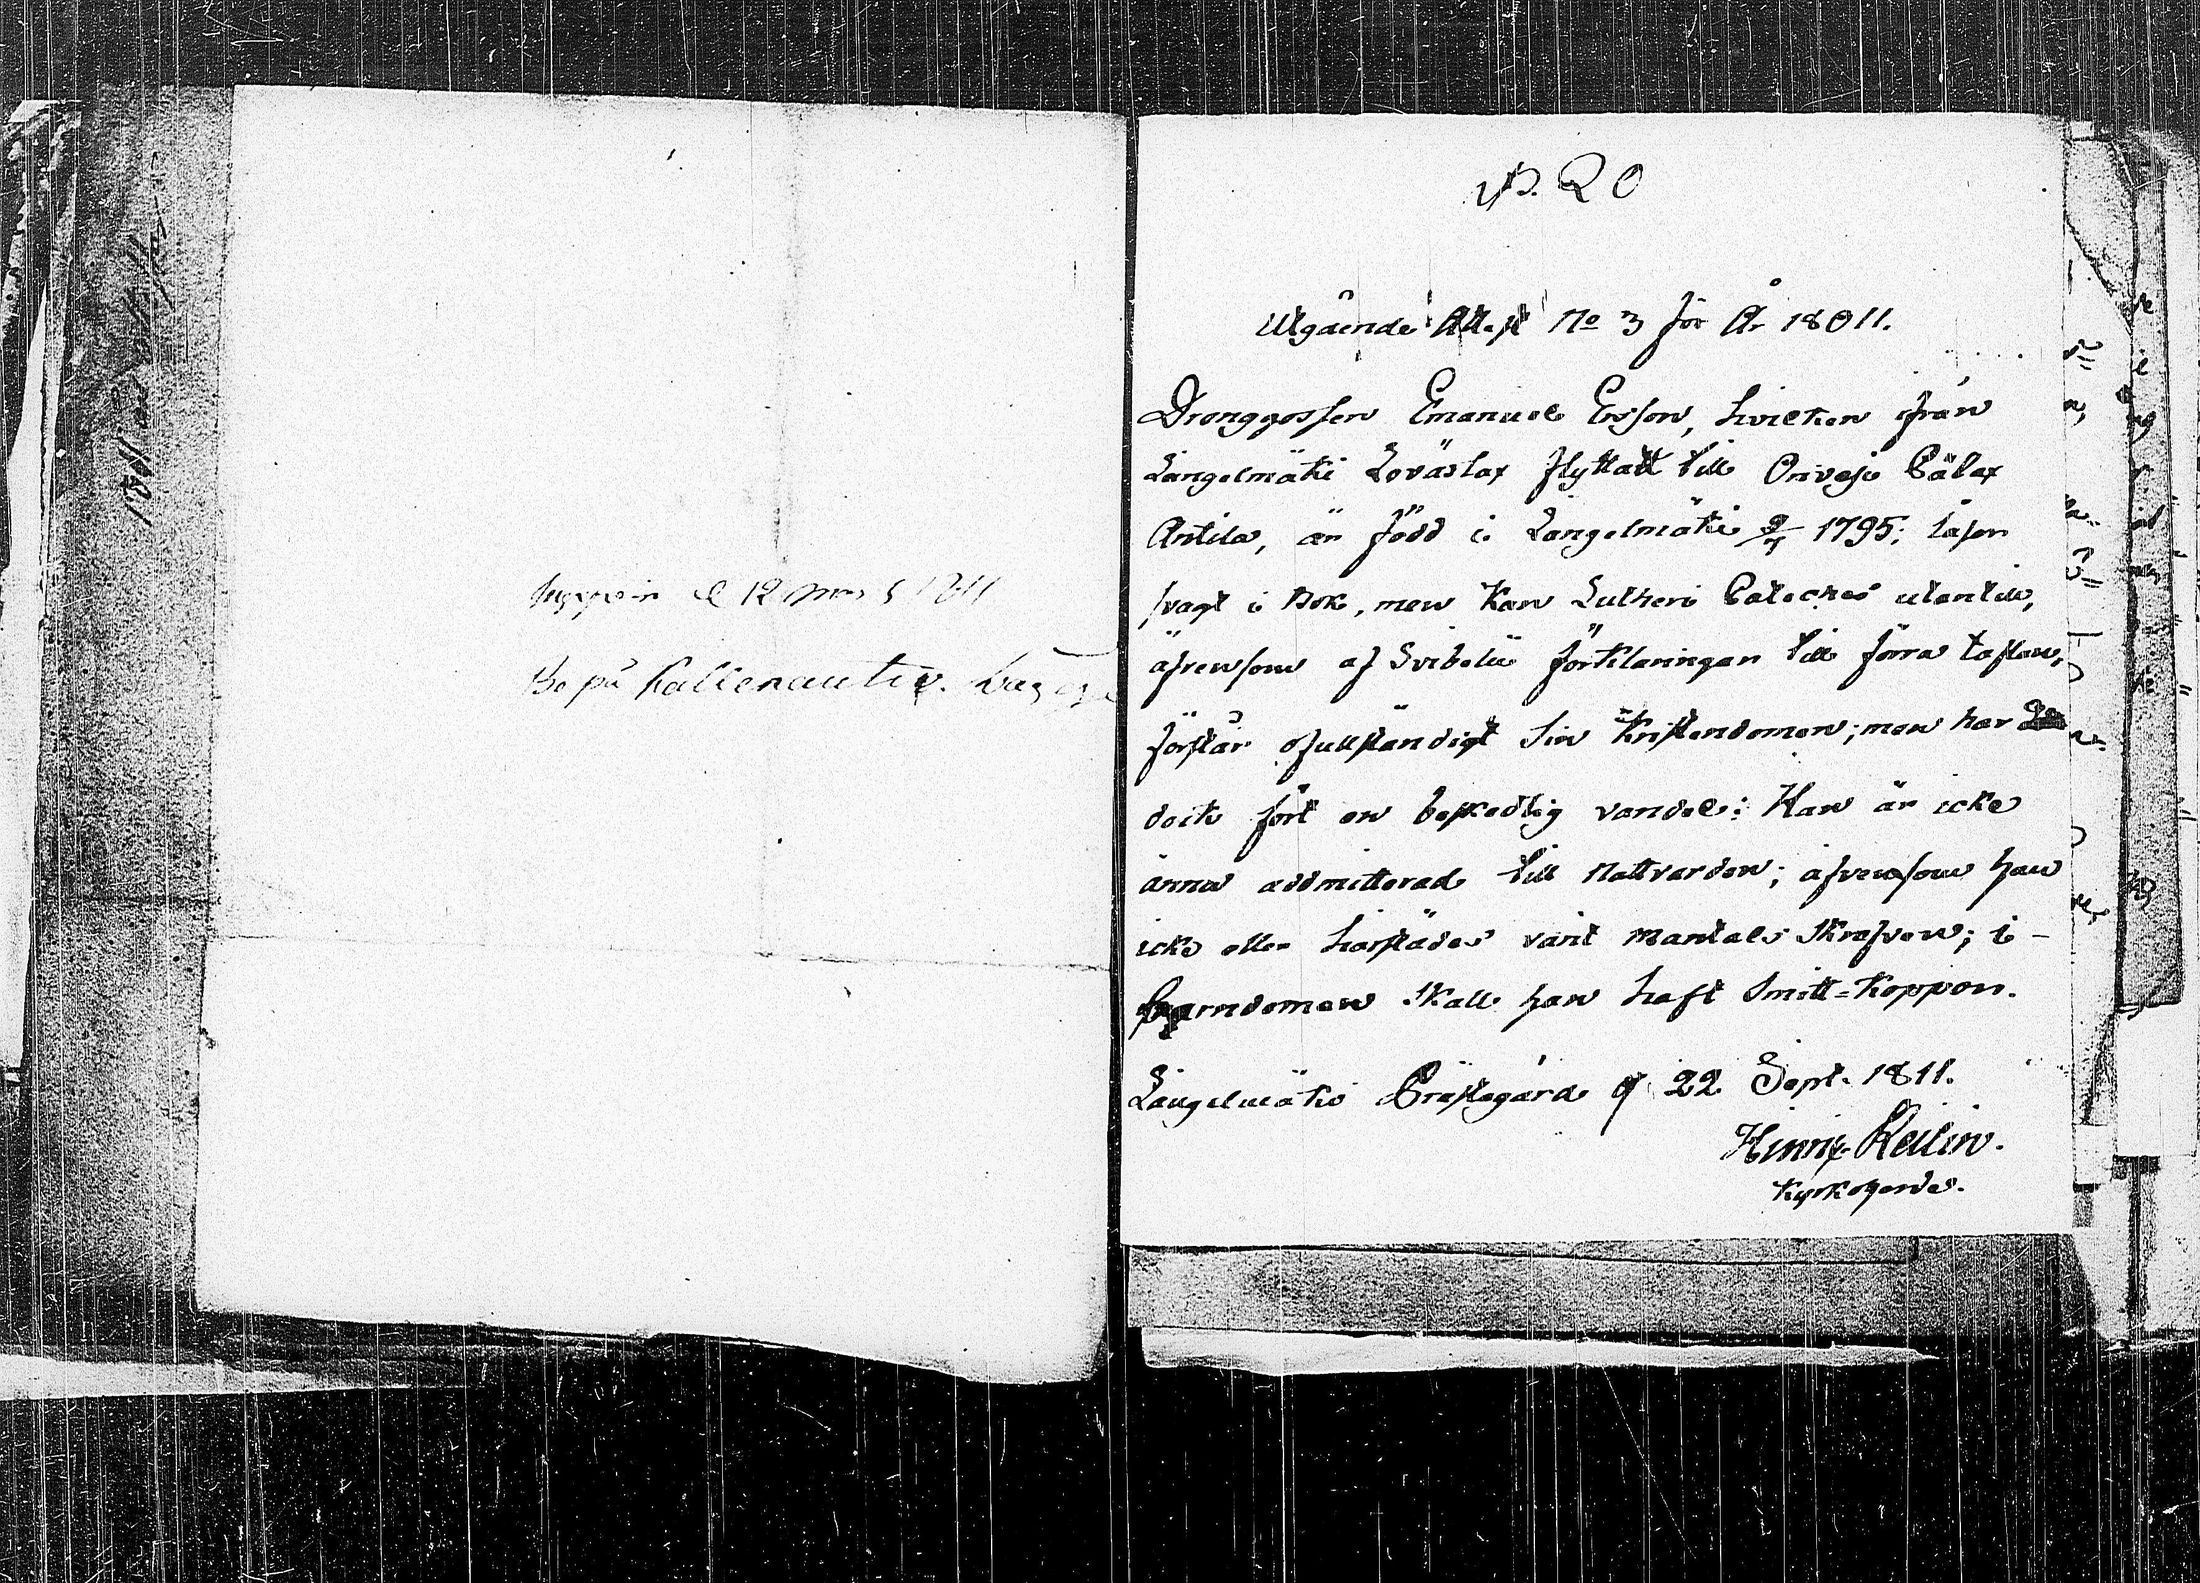 d 12 Mars 1811
Bo på Kallenautio.
N. 20
Utgående Attest No 3 för År 1811.
Drenggossen Emanuel Ersson, hvilken ifrån
Längelmäki Löväslax flyttatt till Orivesi Päläx
Antila, är född i Längelmäki 9/7 1795; läser
svagt i Bok, men kan Lutheri Cateches utantill,
äfvensom af Svebelii förklaringar till förra taflan,
förstår ofullständigt sin Kristendomen; men har
dock fört en beskedlig vandel: Han är icke
ännu addmitterad till Nattvarden; äfvensom han
icke eller härstädes varit Mantals Skrefven; i -
barndomen skall han haft Smitt=Koppon.
Längelmäki Prästegård d 22 Sept. 1811.
Hinric Relin.
Kyrkoherde.